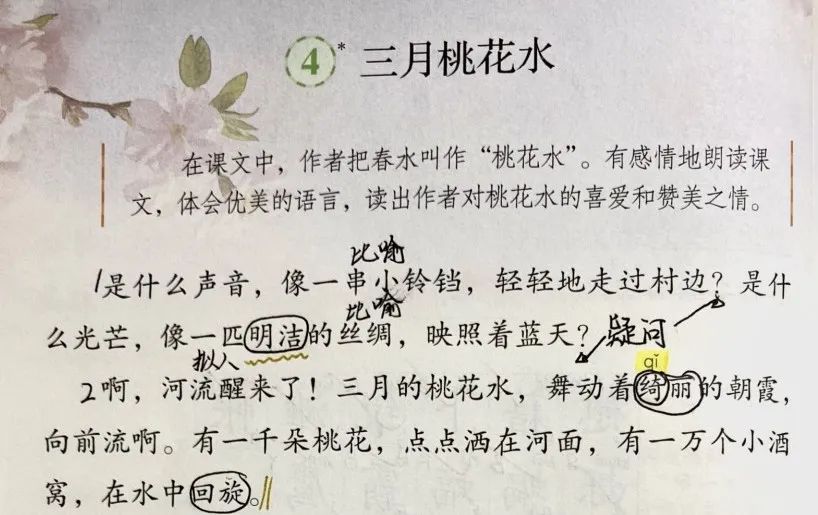 4* 三月桃花水
在课文中，作者把春水叫作“桃花水”。有感情地朗读课
文，体会优美的语言，读出作者对桃花水的喜爱和赞美之情。
比喻
1是什么声音，像一串小铃铛，轻轻地走过村边？是什
比喻
么光芒，像一匹明洁的丝绸，映照着蓝天？疑问
拟人
qǐ
2啊，河流醒来了！三月的桃花水，舞动着绮丽的朝霞，
向前流啊。有一千朵桃花，点点洒在河面，有一万个小酒
窝，在水中回旋。